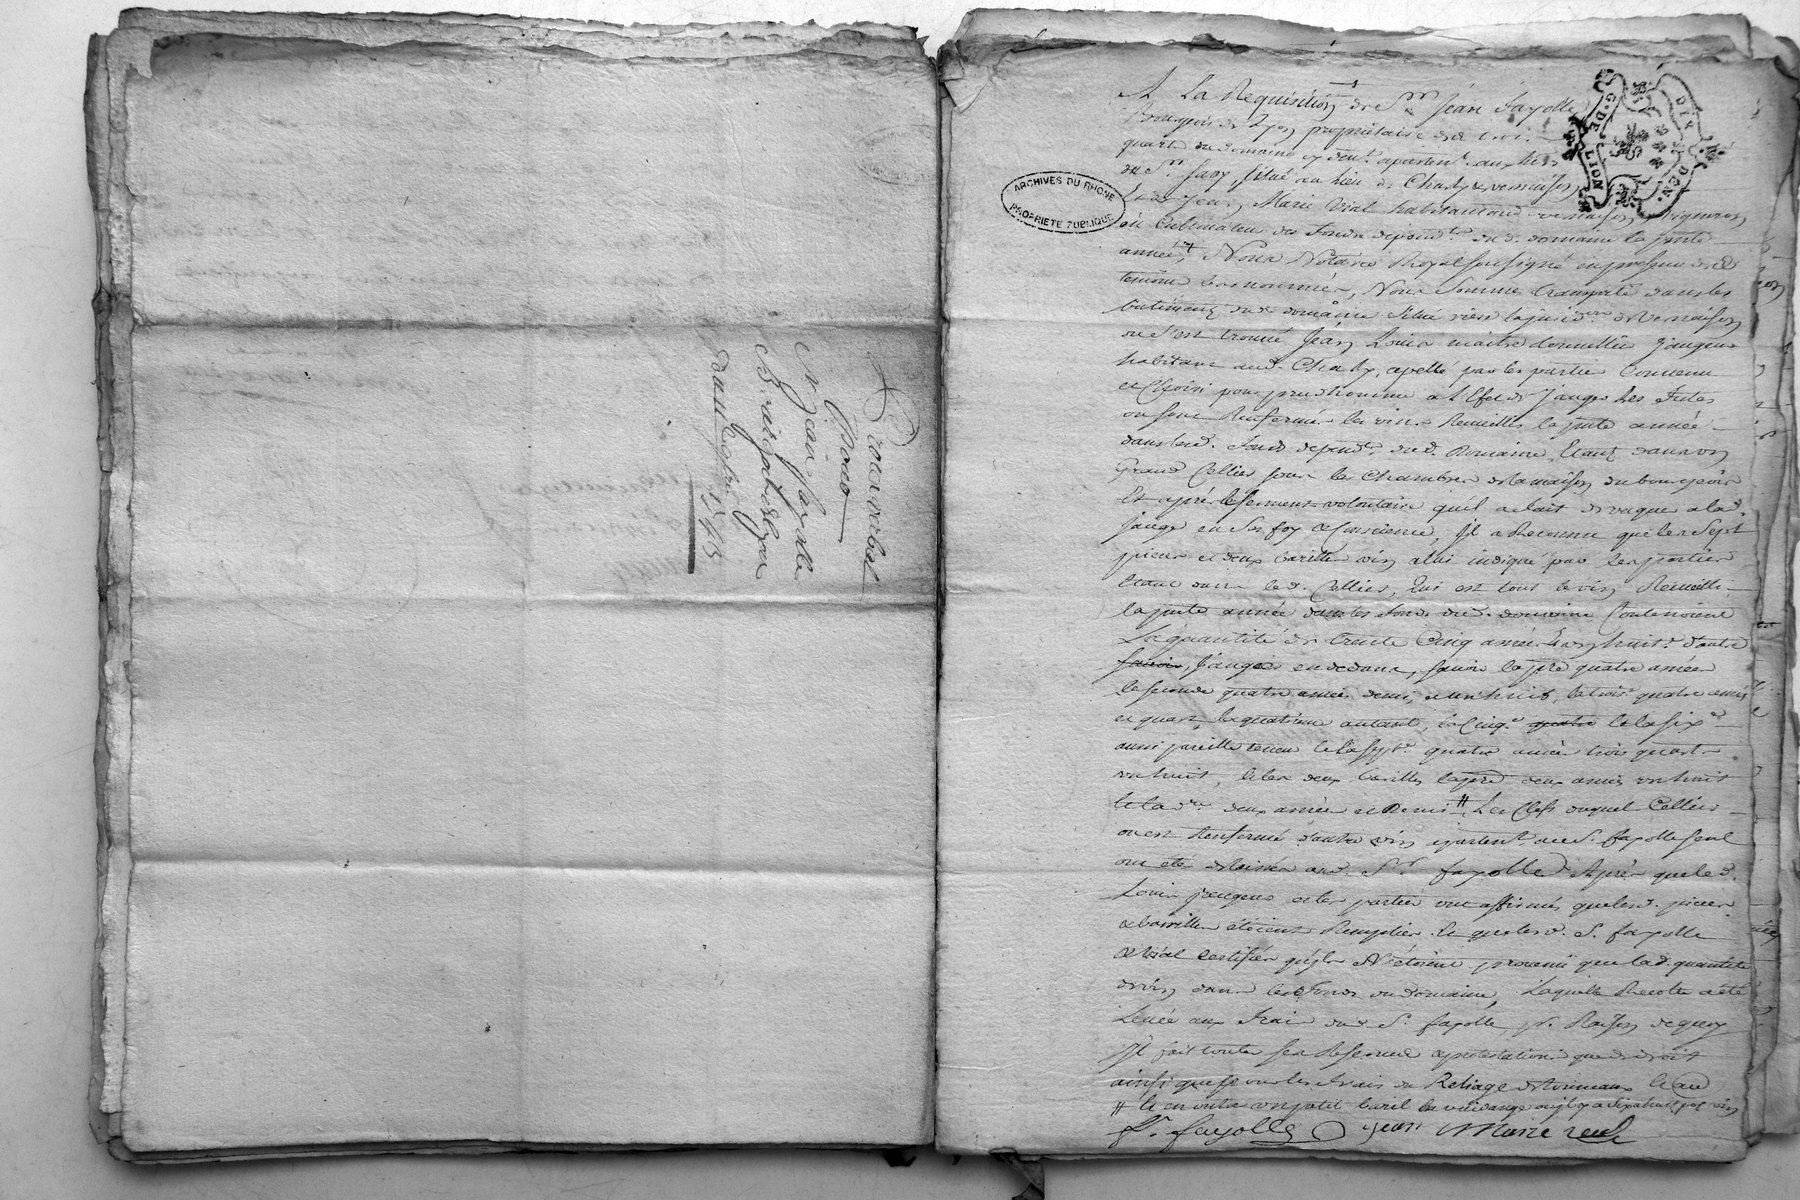 Procès verbal
Pour
Sr Jean fayolle
Bourgeois de Lyon
ARCHIVES DU RHONE
PROPRIETE PUBLIQUE
G. DE LION
A La Requisition de Sr Jean fayolle
Bourgeois de Lyon proprietaire de
quarts du domaine cy devt apartent aux
du Sr situé au lieu de Charly & vernaison
Et de Jean Marie Vial habitant aud. vernaison vigneron
et Cultivateur des fonds dépendts dud. domaine la pnte
année, Nous Notaire Royal soussigné en presence des
temoins bas nommés, Nous sommes transporté dans les
batiments dud. domaine situé riere la juridon de Vernaison
ou s'est trouvé Jean Louis maitre tonnellier jaugeur
habitant aud. Charly, apellé par les parties Convenu
et Choisi pour prudhomme a l'effet de jauger les futes
ou sont Renfermés les vins Recueillis la pnte année
dans lesd. fonds dependts dud. Domaine Etant dans un
Grand Cellier sous les Chambres de la maison du bourgeois
Et après le serment volontaire qu'il a fait de vaquer a lad.
jauge en son foy & Conscience, Il a Reconnu que les sept
pieces et deux barilles vin a lui indiqué par les parties
étant dans led. Cellier, Qui est tout le vin Recueilli
la pnte année dans les fonds dud. domaine Contenoient
La quantité de trente Cinq année & un huit.
savoir, jaugées en dedans, savoir la pre quatre année
la seconde quatre année demi et un huit, la trois. quatre année
et quart, la quatrieme autant, la Cinqe quatre Et la sixe
aussi pareille teneur Et la septe quatre année trois quart
un huit, Et les deux barilles la pre deux année un huit
Et la de deux année et Demi # Les Clefs duquel Cellier
ou est Renfermé d'autre vin apartent aud S. fayolle seul
ont été delaissées aud. Sr fayolle Après que led.
Louis jaugeur et les parties ont affirmés que lesd. pieces
& barille étoient Remplies Et que lesd. S. fayolle
& Vial certifier qu'il n'étoient provenu que lad. quantité
de vin dans les fonds du domaine, Laquelle Recolte a été
Levée aux frais dud S. fayolle, pr. Raison de quoy
Il fait toutes ses Reserves & protestations que de droit
ainsi que pour les frais du Reliage des tonneaux
# Et en outre un petit baril
fr. fayolle Jean Marie